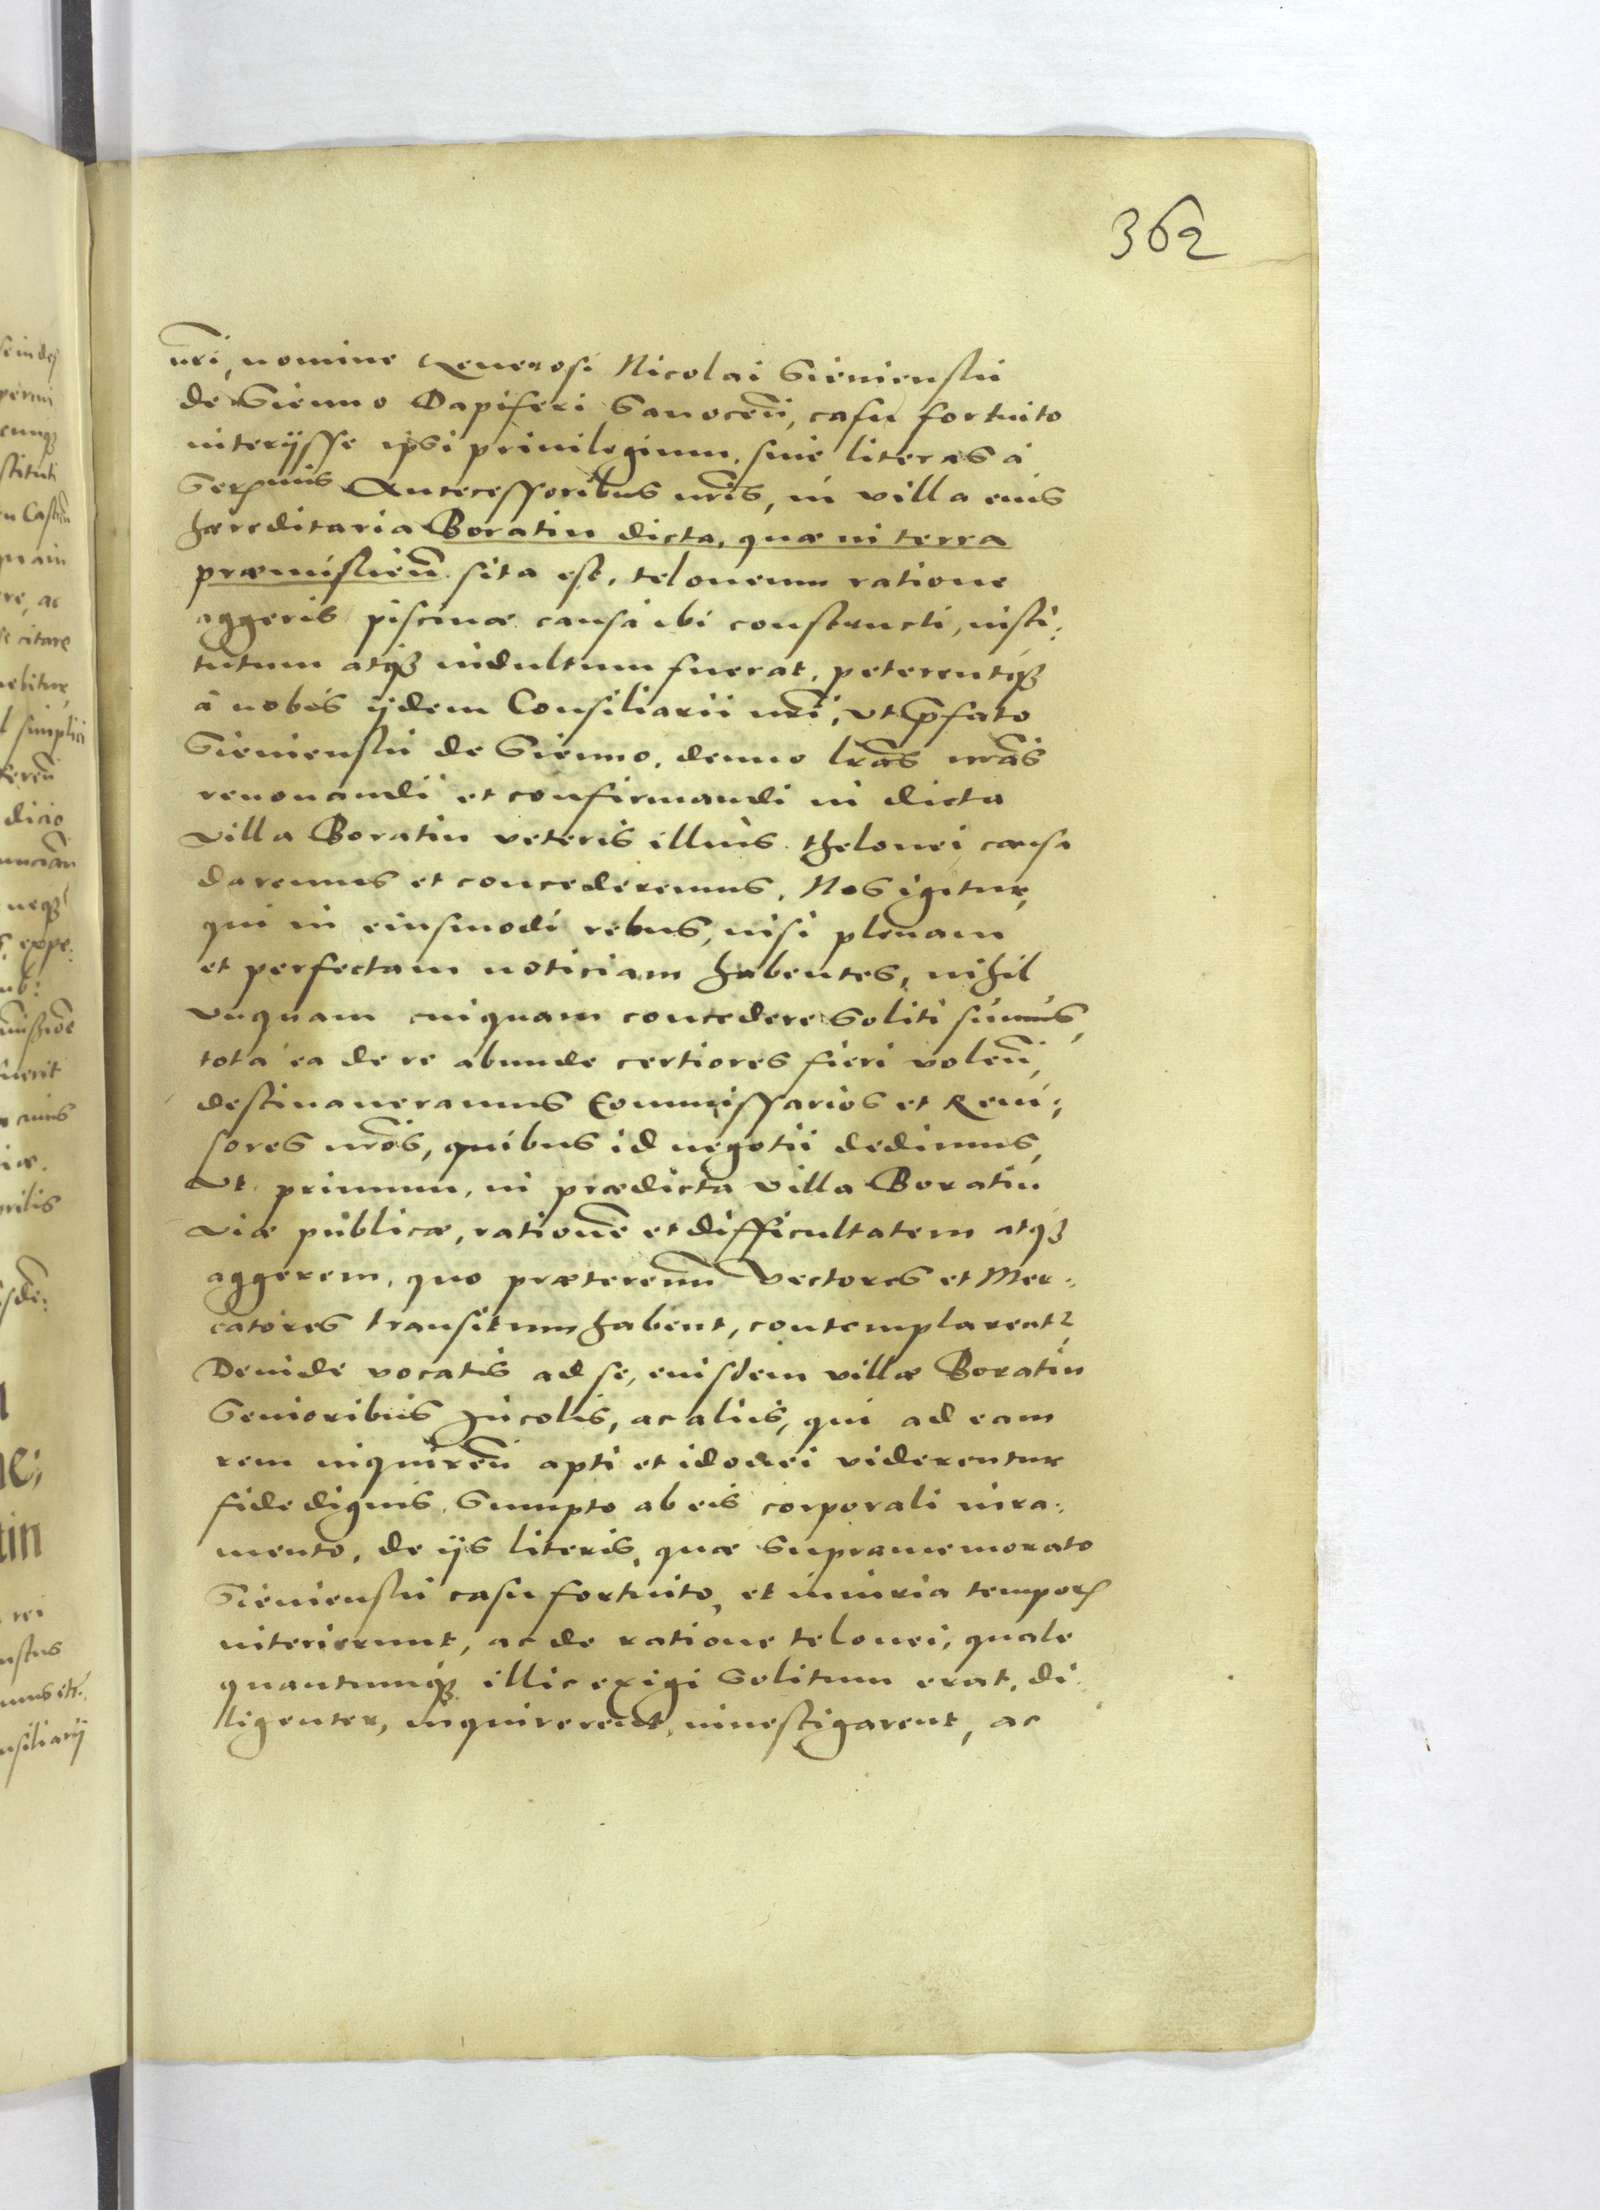 362
nri, nomine Generosi Nicolai Sienienskii
de Sienno Dapiferi Sanoceñ, casu fortuito
interijsse ipsi priuilegium, siue literas à
Serenmis Antecessoribus nris, in villa eius
haereditaria Boratin dicta, quae in terra
praemislieñ sita est, teloneum ratione
aggeris piscinae causa ibi constructi, insti:
tutum atq3 indultum fuerat, peterentq3
à nobis ijdem Consiliarii nri, vt pfato
Sienienskii de Sienno, denuo lras nras
renouandi et confirmandi in dicta
villa Boratin veteris illius thelonei causa
daremus et concederemus. Nos igitur,
qui in eiusmodi rebus, nisi plenam
et perfectam noticiam habentes, nihil
vnquam cuiquam concedere soliti sumus,
tota ea de re abunde certiores fieri voleñ,
destinaueramus Commissarios et Reui:
sores nros, quibus id negotii dedimus,
Vt primum, in praedicta villa Boratin
viae publicae, rationē et difficultatem atq3
aggerem, quo praetereuñ vectores et Mer:
catores transitum habent, contemplarent2,
Deinde vocatis ad se, euisdem villae Boratin
Senioribus Incolis, ac aliis, qui ad eam
rem inquireñ apti et idonei viderentur
fide dignis, sumpto ab eis corporali iura:
mento, de ijs literis, quae supramemorato
Sienienskii casu fortuito, et iniuria tempor
interierunt, ac de ratione telonei, quale
quantumq3 illic exigi solitum erat, di:
ligenter, inquirerent, inuestigarent, ac